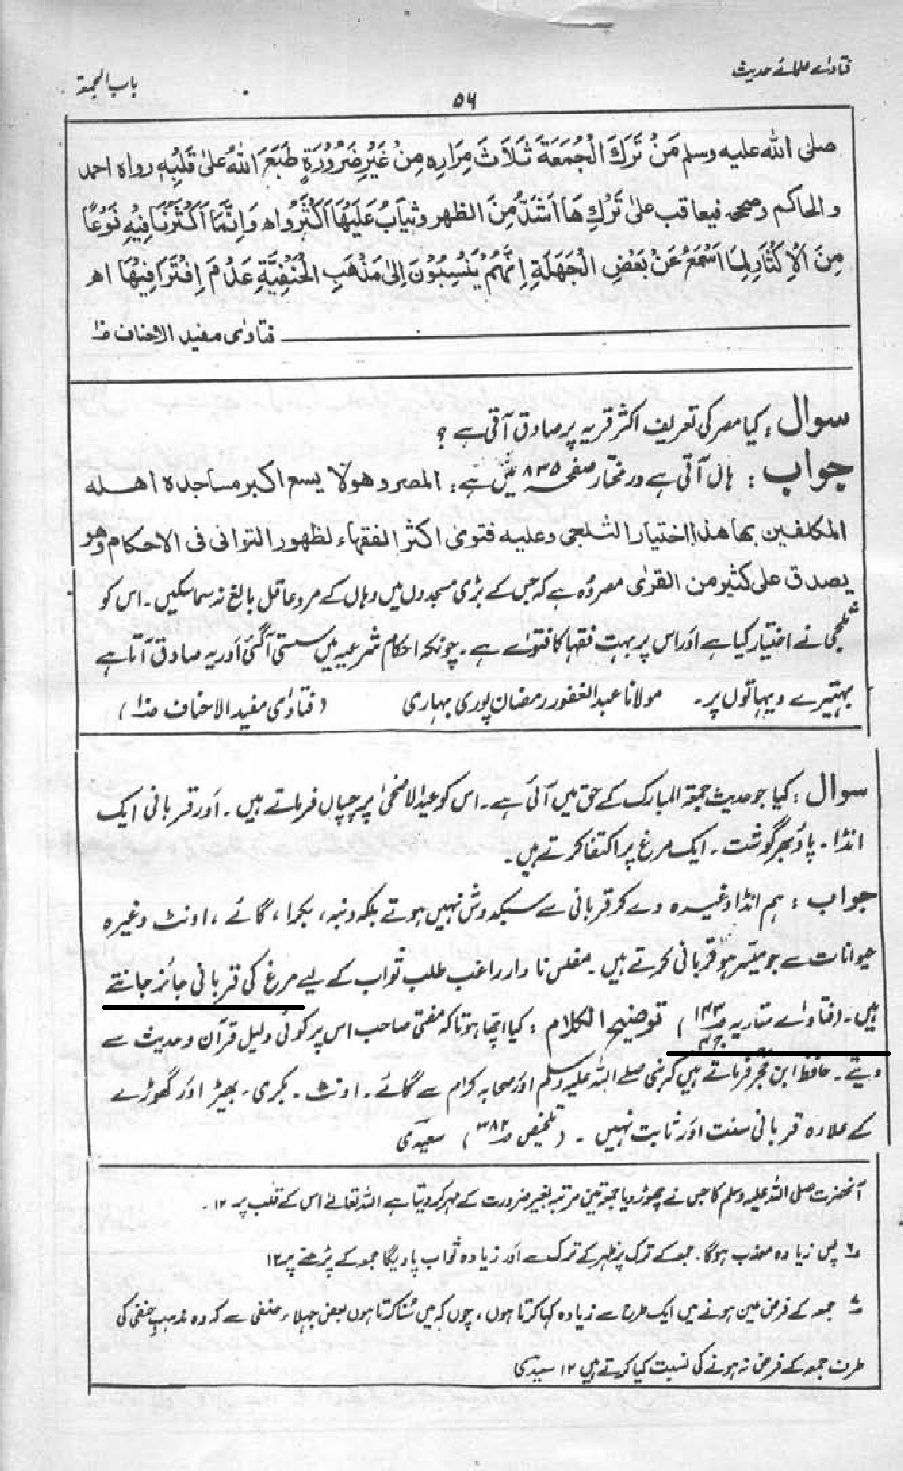 فتاوائے علمائے حدیث
باب الجمعة
۵۶
صلی اللہ علیہ وسلم مَنْ تَرَكَ الْجُمُعَةَ ثَلَاثَ مِرَارٍ مِنْ غَيْرِ ضَرُوْرَةٍ طَبَعَ اللهُ عَلىٰ قَلْبِهٖ رواه احمد
والحاكم وصححه فيعاقب علىٰ تَرْكِهَا اَشَدَّ مِنَ الظهر وثيابُ عَلَيْهَا اَكْثَرُ واه وَاِنَّمَا اَكْثَرْنَا فِيْهِ نَوْعًا
مِنَ الْاِكْثَارِ لِمَا اَسْمَعُ عَنْ بَعْضِ الْجَهَلَةِ اِنَّهُمْ يَنْسِبُوْنَ اِلىٰ مَذْهَبِ الْحَنَفِيَّةِ عَدْمَ اِفْتَرَافِيْهَا اھ
فتاوٰی مفید الاحناف
سوال : کیا مصر کی تعریف اکثر قریہ پر صادق آتی ہے ؟
جواب : ہاں آتی ہے درمختار صفحہ ۸۳۵ میں ہے: المصر وهولا يسع اكبر مساجدة اهله
المكلفين بها هذا اختيار الثلجى وعليه فتوى اكثر الفقهاء لظهور التوانى فى الاحكام وهو
يصدق على كثير من القرٰى مصر وہ ہے کہ جس کے بڑی مسجدوں میں وہاں کے مرد عاقل بالغ نہ سما سکیں۔ اس کو
ثلجی نے اختیار کیا ہے اور اس پر بہت فقہا کا فتوٰے ہے۔ چونکہ احکام شرعیہ میں سستی آگئی اور یہ صادق آتا ہے
بہتیرے دیہاتوں پر۔ مولانا عبد الغفور رمضان پوری بہاری (فتاوٰی مفید الاحناف)
سوال : کیا جو حدیث جمعۃ المبارک کے حق میں آئی ہے۔ اس کو عید الاضحیٰ پر چسپاں فرماتے ہیں۔ اور قربانی ایک
انڈا۔ پاؤ بھر گوشت۔ ایک مرغ پر اکتفا کرتے ہیں۔
جواب : ہم انڈا وغیرہ دے کر قربانی سے سبکدوش نہیں ہوتے بلکہ دنبہ، بکرا، گائے، اونٹ وغیرہ
حیوانات سے جو میسر ہو قربانی کرتے ہیں۔ مفلس نادار راغب طلب ثواب کے لیے مرغ کی قربانی جائز جانتے
ہیں۔ (فتاوائے ستاریہ ص۱۴۳) توضیح الکلام : کیا اچھا ہوتا کہ مفتی صاحب اس پر کوئی دلیل قرآن و حدیث سے
دیتے۔ حافظ ابن حجر فرماتے ہیں کہ نبی صلے اللہ علیہ وسلم اور صحابہ کرام سے گائے۔ اونٹ۔ بکری۔ بھیڑ اور گھوڑے
کے علاوہ قربانی سنت اور ثابت نہیں۔ (تلخیص ص۳۸۲) سعیدی
آنحضرت صلی اللہ علیہ وسلم کا جس نے چھوڑ دیا جمعہ تین مرتبہ بغیر ضرورت کے مہر کر دیتا ہے اللہ تعالےٰ اس کے قلب پر ۱۲۔
پس زیادہ معذب ہوگا۔ جمعہ کے ترک پر ظہر کے ترک سے اور زیادہ ثواب پاویگا جمعہ کے پڑھنے پر ۱۲
جمعہ کے فرض عین ہونے میں ایک طرح سے زیادہ کہا کرتا ہوں، چوں کہ میں سُنا کرتا ہوں بعض جہلاء حنفی سے کہ وہ مذہب حنفی کی
طرف جمعہ کے فرض نہ ہونے کی نسبت کیا کرتے ہیں ۱۲ سعیدی